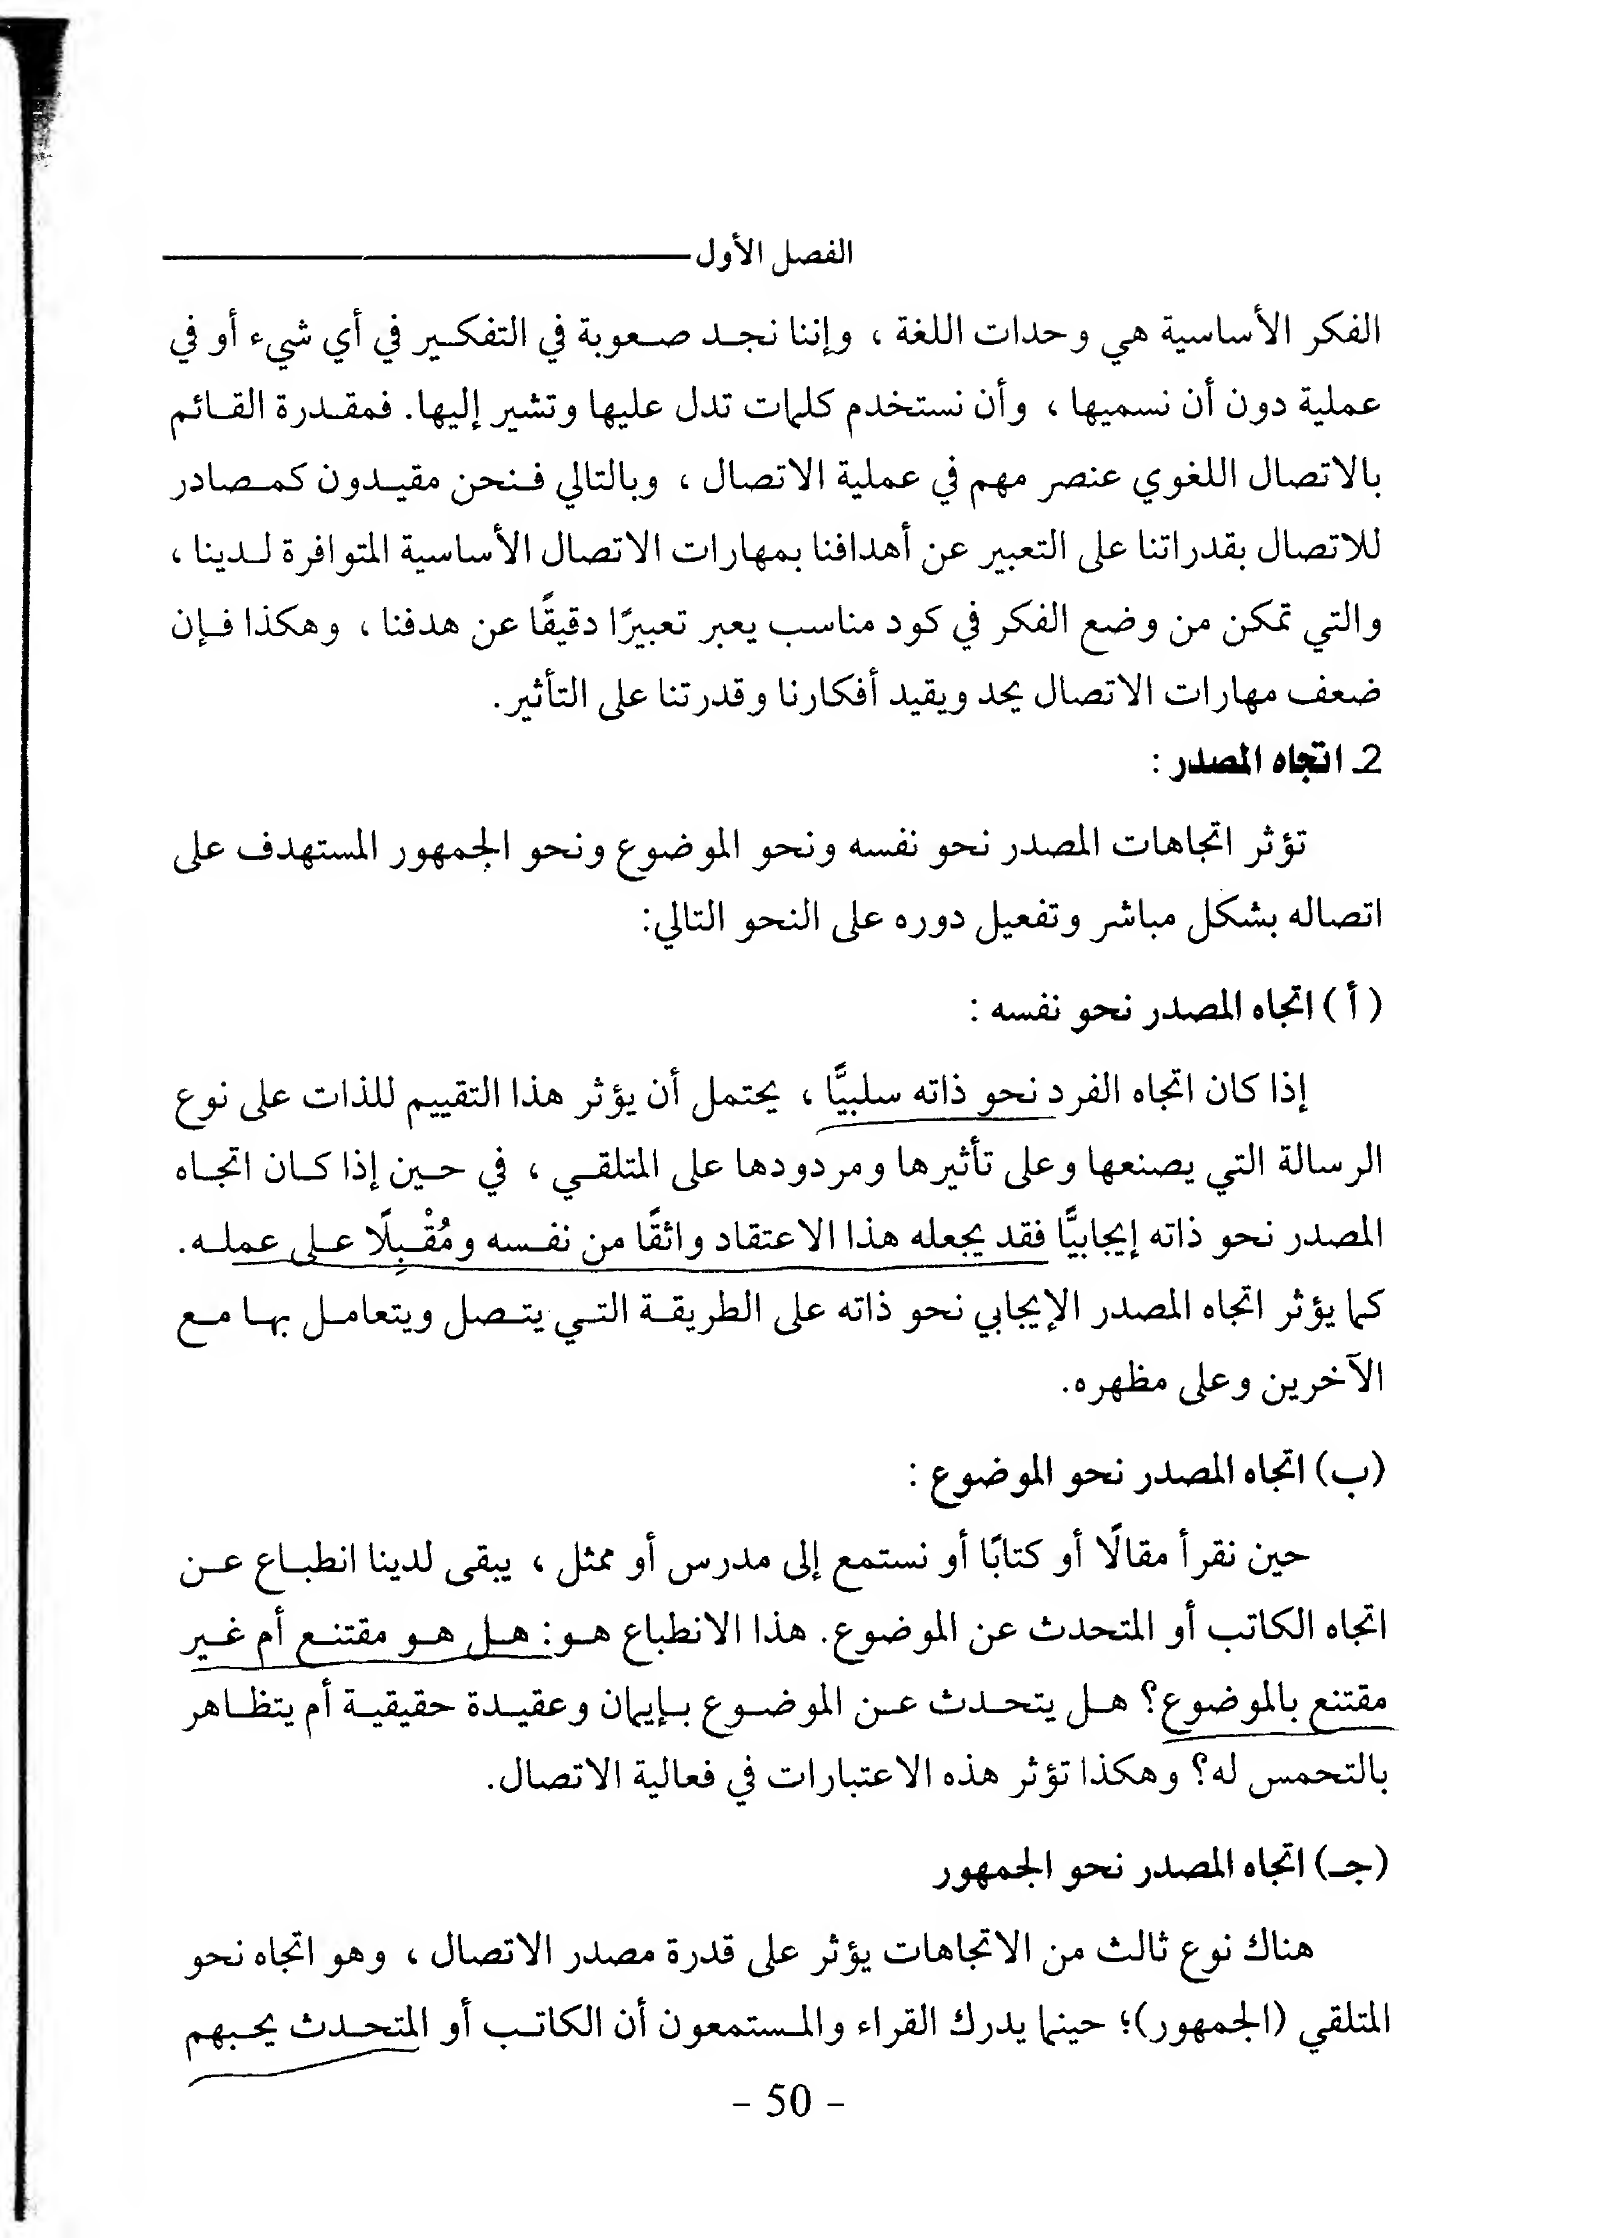 الفصل الأول
الفكر الأساسية هي وحدات اللغة ، وإننا نجد صعوبة في التفكير في أي شيء أو في
عملية دون أن نسميها ، وأن نستخدم كلمات تدل عليها وتشير إليها. فمقدرة القائم
بالاتصال اللغوي عنصر مهم في عملية الاتصال ، وبالتالي فنحن مقيدون كمصادر
للاتصال بقدراتنا على التعبير عن أهدافنا بمهارات الاتصال الأساسية المتوافرة لدينا ،
والتي تمكن من وضع الفكر في كود مناسب يعبر تعبيرًا دقيقًا عن هدفنا ، وهكذا فإن
ضعف مهارات الاتصال يحد ويقيد أفكارنا وقدرتنا على التأثير.
2ـ اتجاه المصدر :
تؤثر اتجاهات المصدر نحو نفسه ونحو الموضوع ونحو الجمهور المستهدف على
اتصاله بشكل مباشر وتفعيل دوره على النحو التالي:
( أ ) اتجاه المصدر نحو نفسه :
إذا كان اتجاه الفرد نحو ذاته سلبيًّا ، يحتمل أن يؤثر هذا التقييم للذات على نوع
الرسالة التي يصنعها وعلى تأثيرها ومردودها على المتلقي ، في حين إذا كان اتجاه
المصدر نحو ذاته إيجابيًّا فقد يجعله هذا الاعتقاد واثقًا من نفسه ومُقْبِلًا على عمله.
كما يؤثر اتجاه المصدر الإيجابي نحو ذاته على الطريقة التي يتصل ويتعامل بها مع
الآخرين وعلى مظهره.
(ب) اتجاه المصدر نحو الموضوع :
حين نقرأ مقالًا أو كتابًا أو نستمع إلى مدرس أو ممثل ، يبقى لدينا انطباع عن
اتجاه الكاتب أو المتحدث عن الموضوع. هذا الانطباع هو: هل هو مقتنع أم غير
مقتنع بالموضوع؟ هل يتحدث عن الموضوع بإيمان وعقيدة حقيقية أم يتظاهر
بالتحمس له؟ وهكذا تؤثر هذه الاعتبارات في فعالية الاتصال.
(جـ) اتجاه المصدر نحو الجمهور
هناك نوع ثالث من الاتجاهات يؤثر على قدرة مصدر الاتصال ، وهو اتجاه نحو
المتلقي (الجمهور)؛ حينما يدرك القراء والمستمعون أن الكاتب أو المتحدث يحبهم
- 50 -